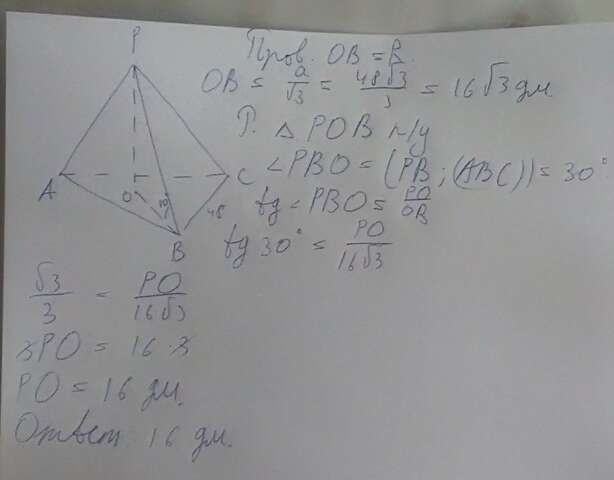 P
A
B
C
O
30°
48
Пров. OB = R.
OB = a/√3 = 48√3/3 = 16√3 дм.
P. △ POB п/у
∠PBO = (PB ; (ABC)) = 30°
tg ∠PBO = PO/OB
tg 30° = PO/16√3
√3/3 = PO/16√3
3PO = 16 · 3
PO = 16 дм.
Ответ: 16 дм.